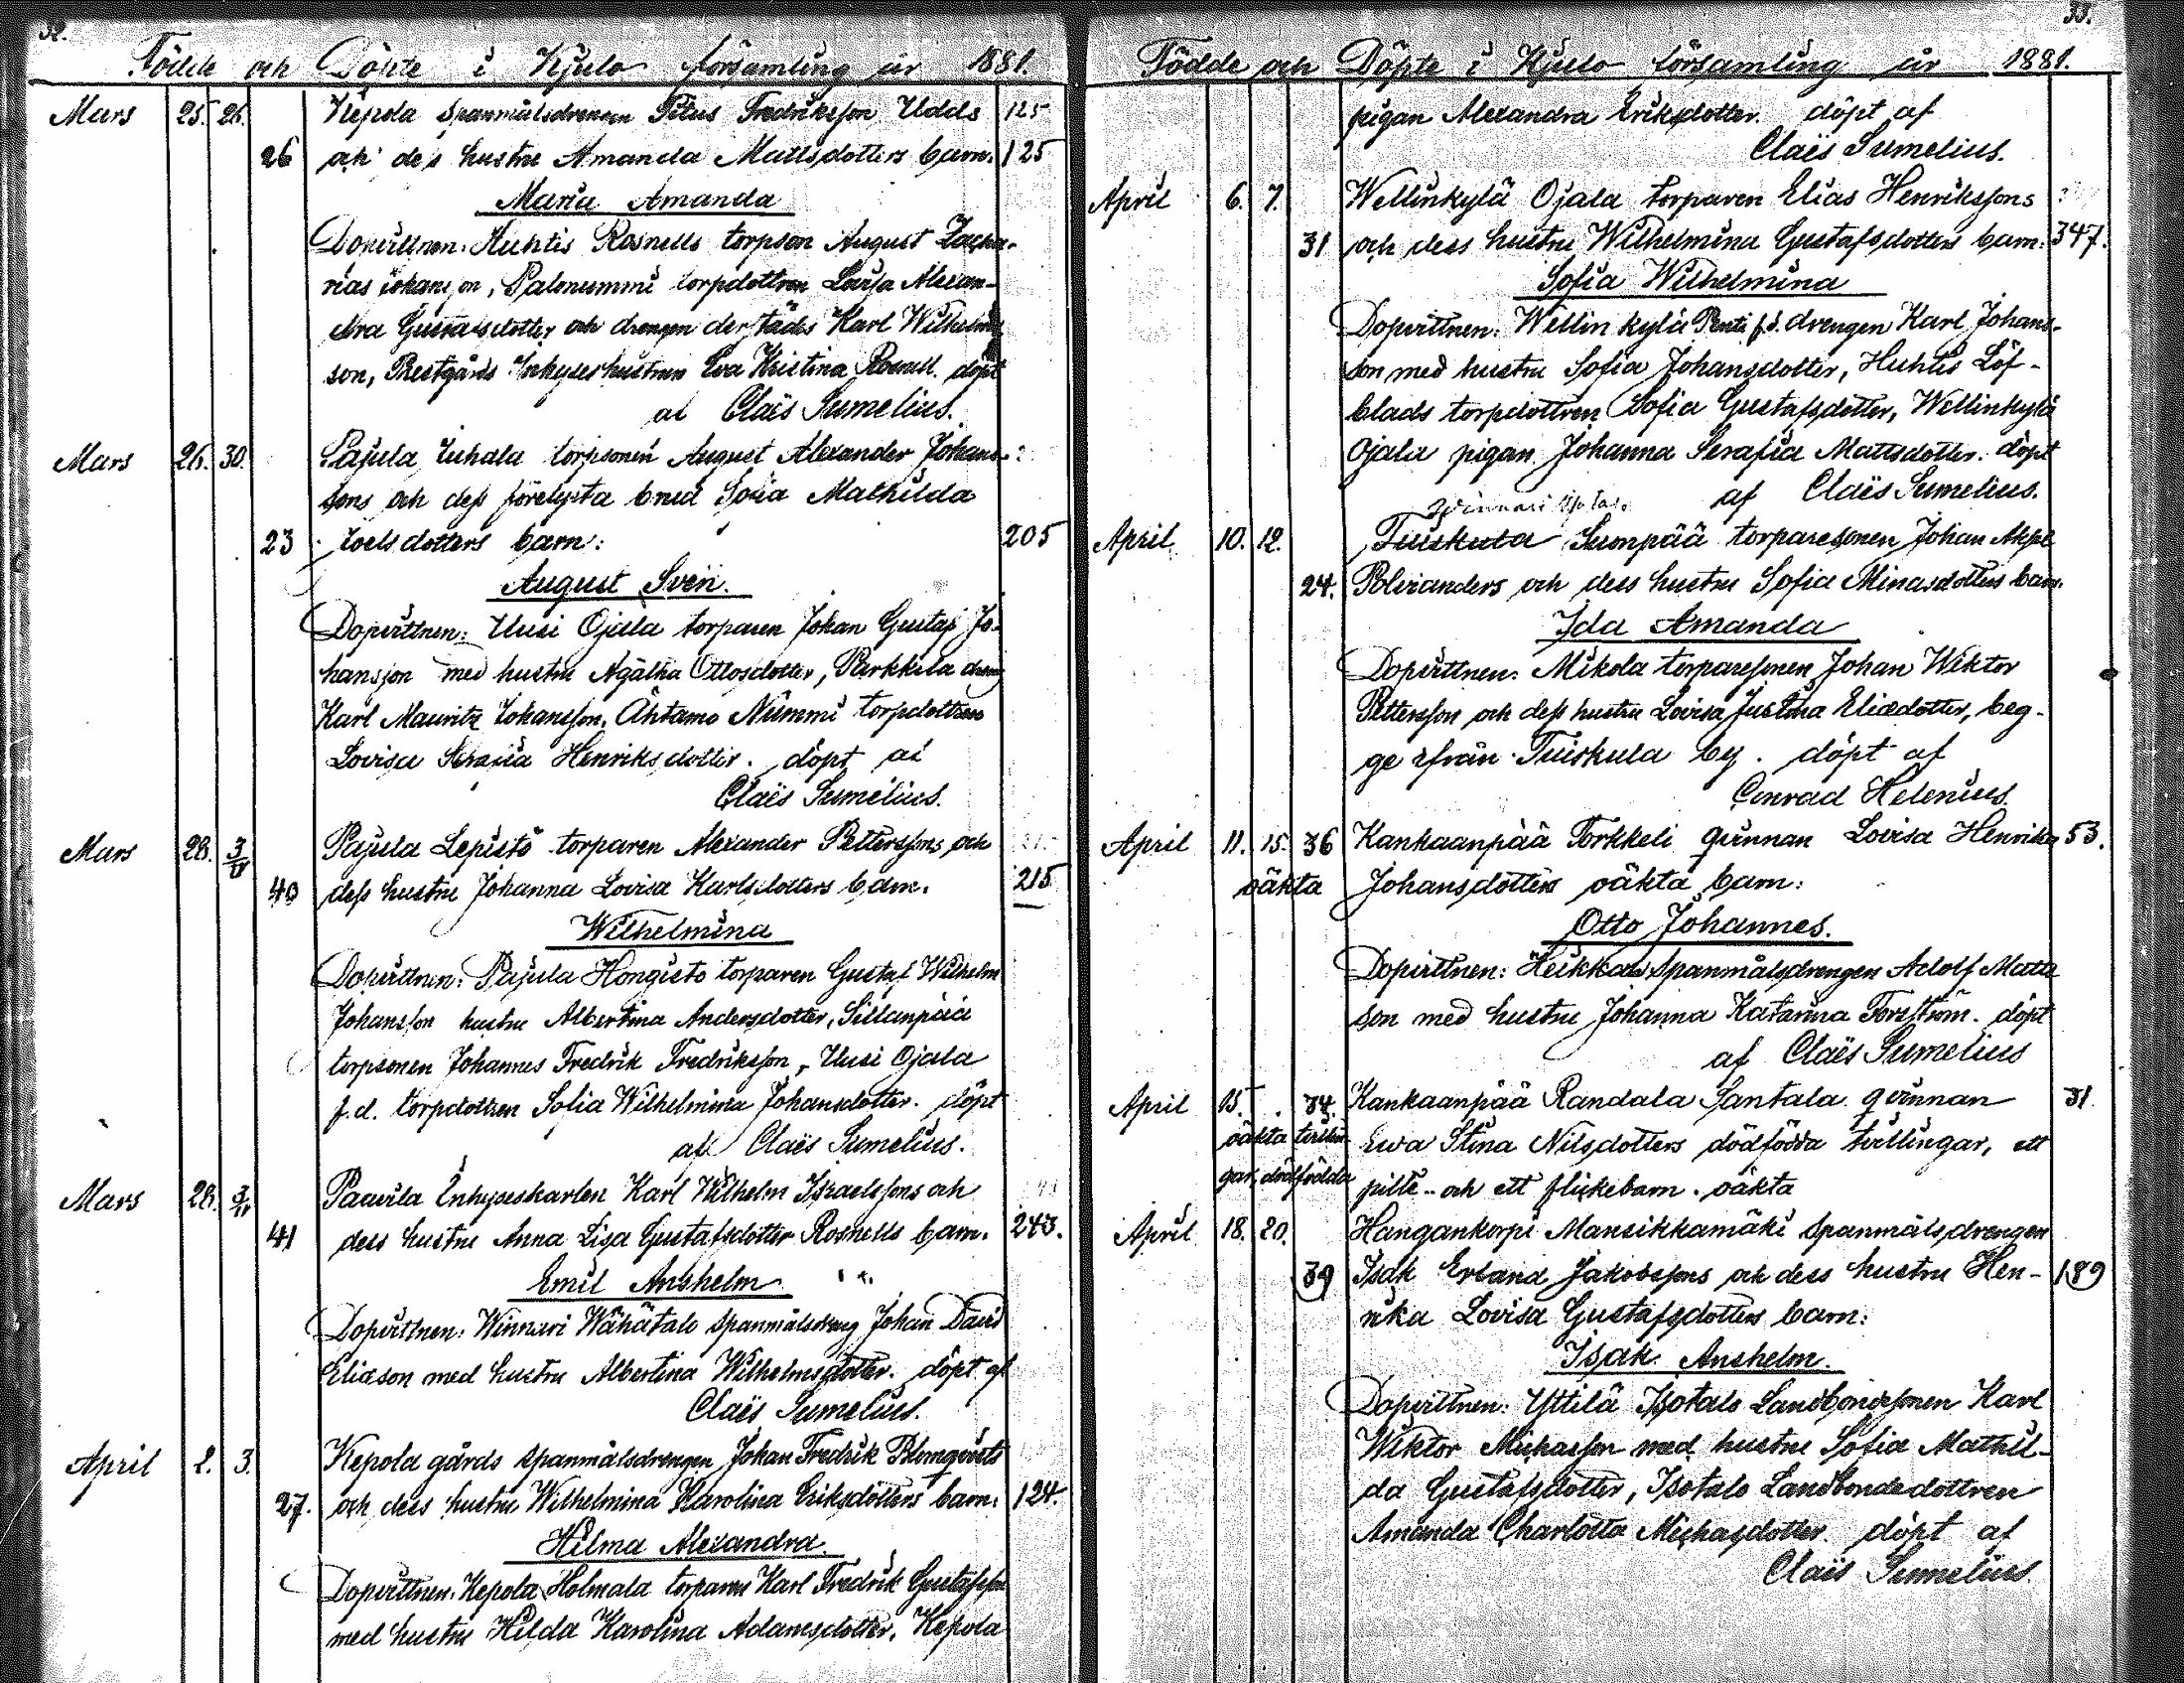 32.
Födde och Döpte i Kjulo församling år 1881.
Mars 25. 26. Kepola spanmålsdrengen Titus Fredriksson Udds 125
26 och des hustru Amanda Mattsdotters barn. 125
Maria Amanda
Dopvittnen: Huhtis Rosnells torpson August Zacha-
rias Johansson, Palonummi torpdottren Lovisa Alexan-
dra Gustafsdotter och drengen derstäds Karl Wilhelms
son, Prestgårds Inhyseshustrun Eva Kristina Rosnell. döpt
af Claës Sumelius.
Mars 26. 30. Pajula Juhala torpsonen August Alexander Johans-
sons och dess förelysta brud Sofia Mathilda
23 Joelsdotters barn: 205
August Sven.
Dopvittnen: Uusi Ojala torparen Johan Gustaf Jo-
hansson med hustru Agatha Ottosdotter, Parkkila dreng
Karl Mauritz Johansson, Ähtamo Nummi torpdottren
Lovisa Serafia Henriksdotter. döpt af
Claës Sumelius.
Mars 28. 3/IV Pajula Lepistö torparen Alexander Petterssons och
40 dess hustru Johanna Lovisa Karlsdotters barn. 215
Wilhelmina
Dopvittnen: Pajula Hongisto torparen Gustaf Wilhelm
Johansson hustru Albertina Andersdotter, Sillanpää
torpsonen Johannes Fredrik Fredriksson, Uusi Ojala
f.d. torpdottren Sofia Wilhelmina Johansdotter. döpt
af Claës Sumelius.
Mars 28. 3/IV Paavila Inhyseskarlen Karl Wilhelm Israelssons och
41 dess hustru Anna Lisa Gustafsdotter Rosnells barn. 243.
Emil Anshelm
Dopvittnen: Winnari Wähätalo spanmålsdreng Johan David
Eliasson med hustru Albertina Wilhelmsdotter. döpt af
Claës Sumelius.
April 2. 3. Kepola gårds spanmålsdrengen Johan Fredrik Blomqvists
27. och dess hustru Wilhelmina Karolina Eriksdotters barn. 124.
Hilma Alexandra.
Dopvittnen: Kepola Holmala torparen Karl Fredrik Gustafsson
med hustru Hilda Karolina Adamsdotter, Kepola
33.
Födde och Döpte i Kjulo församling år 1881.
pigan Alexandra Eriksdotter. döpt af
Claës Sumelius.
April 6. 7. Wellinkylä Ojala torparen Elias Henrikssons
31 och dess hustru Wilhelmina Gustafsdotters barn: 347.
Sofia Wilhelmina
Dopvittnen: Wellinkylä Penti f.d. drengen Karl Johans-
son med hustru Sofia Johansdotter, Huhtis Löf-
blads torpdottren Sofia Gustafsdotter, Wellinkylä
Ojala pigan Johanna Serafia Mattsdotter. döpt
af Claës Sumelius.
Winnari
April 10. 12. Tuiskula Suonpää torparesonen Johan Akseli
24. Polviander​s och dess hustru Sofia Minasdotters barn.
Ida Amanda
Dopvittnen: Mikola torparesonen Johan Wiktor
Pettersson och dess hustru Lovisa Justina Eliedotter, beg-
ge ifrån Tuiskula by. döpt af
Conrad Helenius.
April 11. 15. 36 Kankaanpää Torkkeli qvinnan Lovisa Henrika 53.
oäkta Johansdotters oäkta barn:
Otto Johannes.
Dopvittnen: Heikkas spanmålsdrengen Adolf Matts
son med hustru Johanna Katarina Forsström. döpt
af Claës Sumelius
April 15. 34. Kankaanpää Randala Santala qvinnan 31.
oäkta tvillin- Ewa Stina Nilsdotters dödfödda tvillingar, ett
gar, dödfödda pilte- och ett flickebarn. oäkta
April 18. 20. Hangankorpi Mansikkamäki spanmålsdrengen
39 Isak Erland Jakobssons och dess hustru Hen- 189
rika Lovisa Gustafsdotters barn:
Isak Anshelm.
Dopvittnen: Yttilä Isotalo Landbondesonen Karl
Wiktor Michasson med hustru Sofia Mathil-
da Gustafsdotter, Isotalo Landbondedottren
Amanda Charlotta Michasdotter. döpt af
Claës Sumelius.